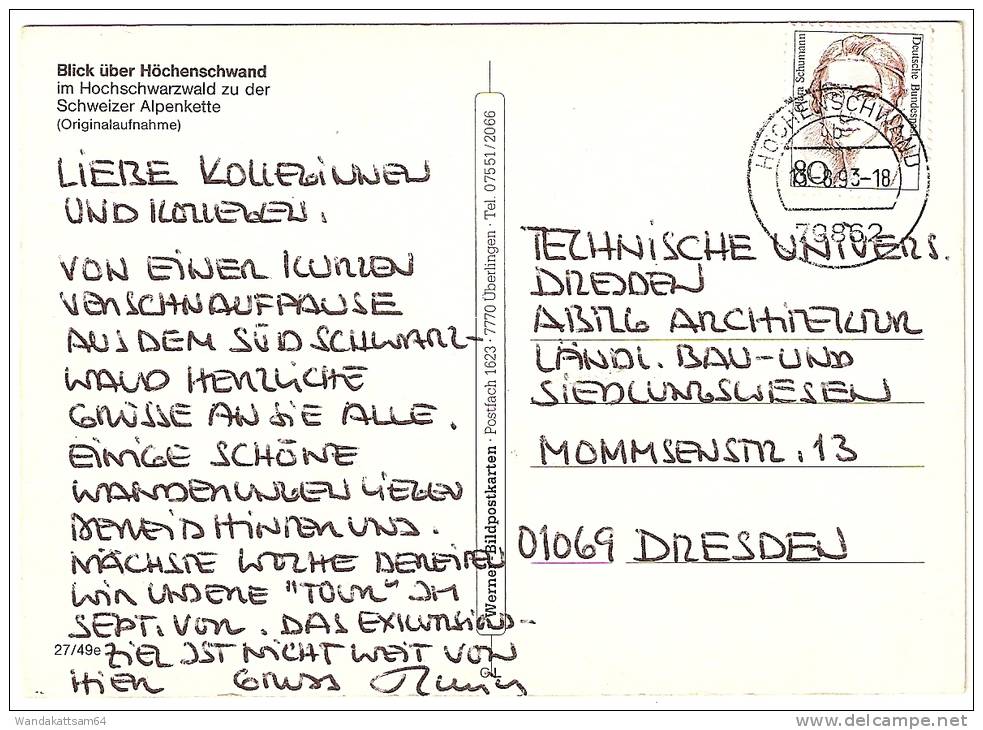 Blick über Höchenschwand
im Hochschwarzwald zu der
Schweizer Alpenkette
(Originalaufnahme)
LIEBE KOLLEGINNEN
UND KOLLEGEN,
VON EINER KURZEN
VERSCHNAUFPAUSE
AUS DEM SÜDSCHWARZ-
WALD HERZLICHE
GRÜSSE AN SIE ALLE.
EINIGE SCHÖNE
WANDERUNGEN LIEGEN
BEREITS HINTER UNS.
NÄCHSTE WOCHE BEREITEN
WIR UNSERE "TOUR" IM
SEPT. VOR. DAS EXKURSIONS-
ZIEL IST NICHT WEIT VON
HIER GRUSS
27/49e
Werner Bildpostkarten · Postfach 1623 · 7770 Überlingen · Tel. 07551/2066
Clara Schumann
Deutsche Bundespost
80
HÖCHENSCHWAND
b
.8.93-18
79862
TECHNISCHE UNIVERS.
DRESDEN
ABTLG ARCHITEKTUR
LÄNDL. BAU-UND
SIEDLUNGSWESEN
MOMMSENSTR. 13
01069 DRESDEN
Wandakattsam64
delcampe.net